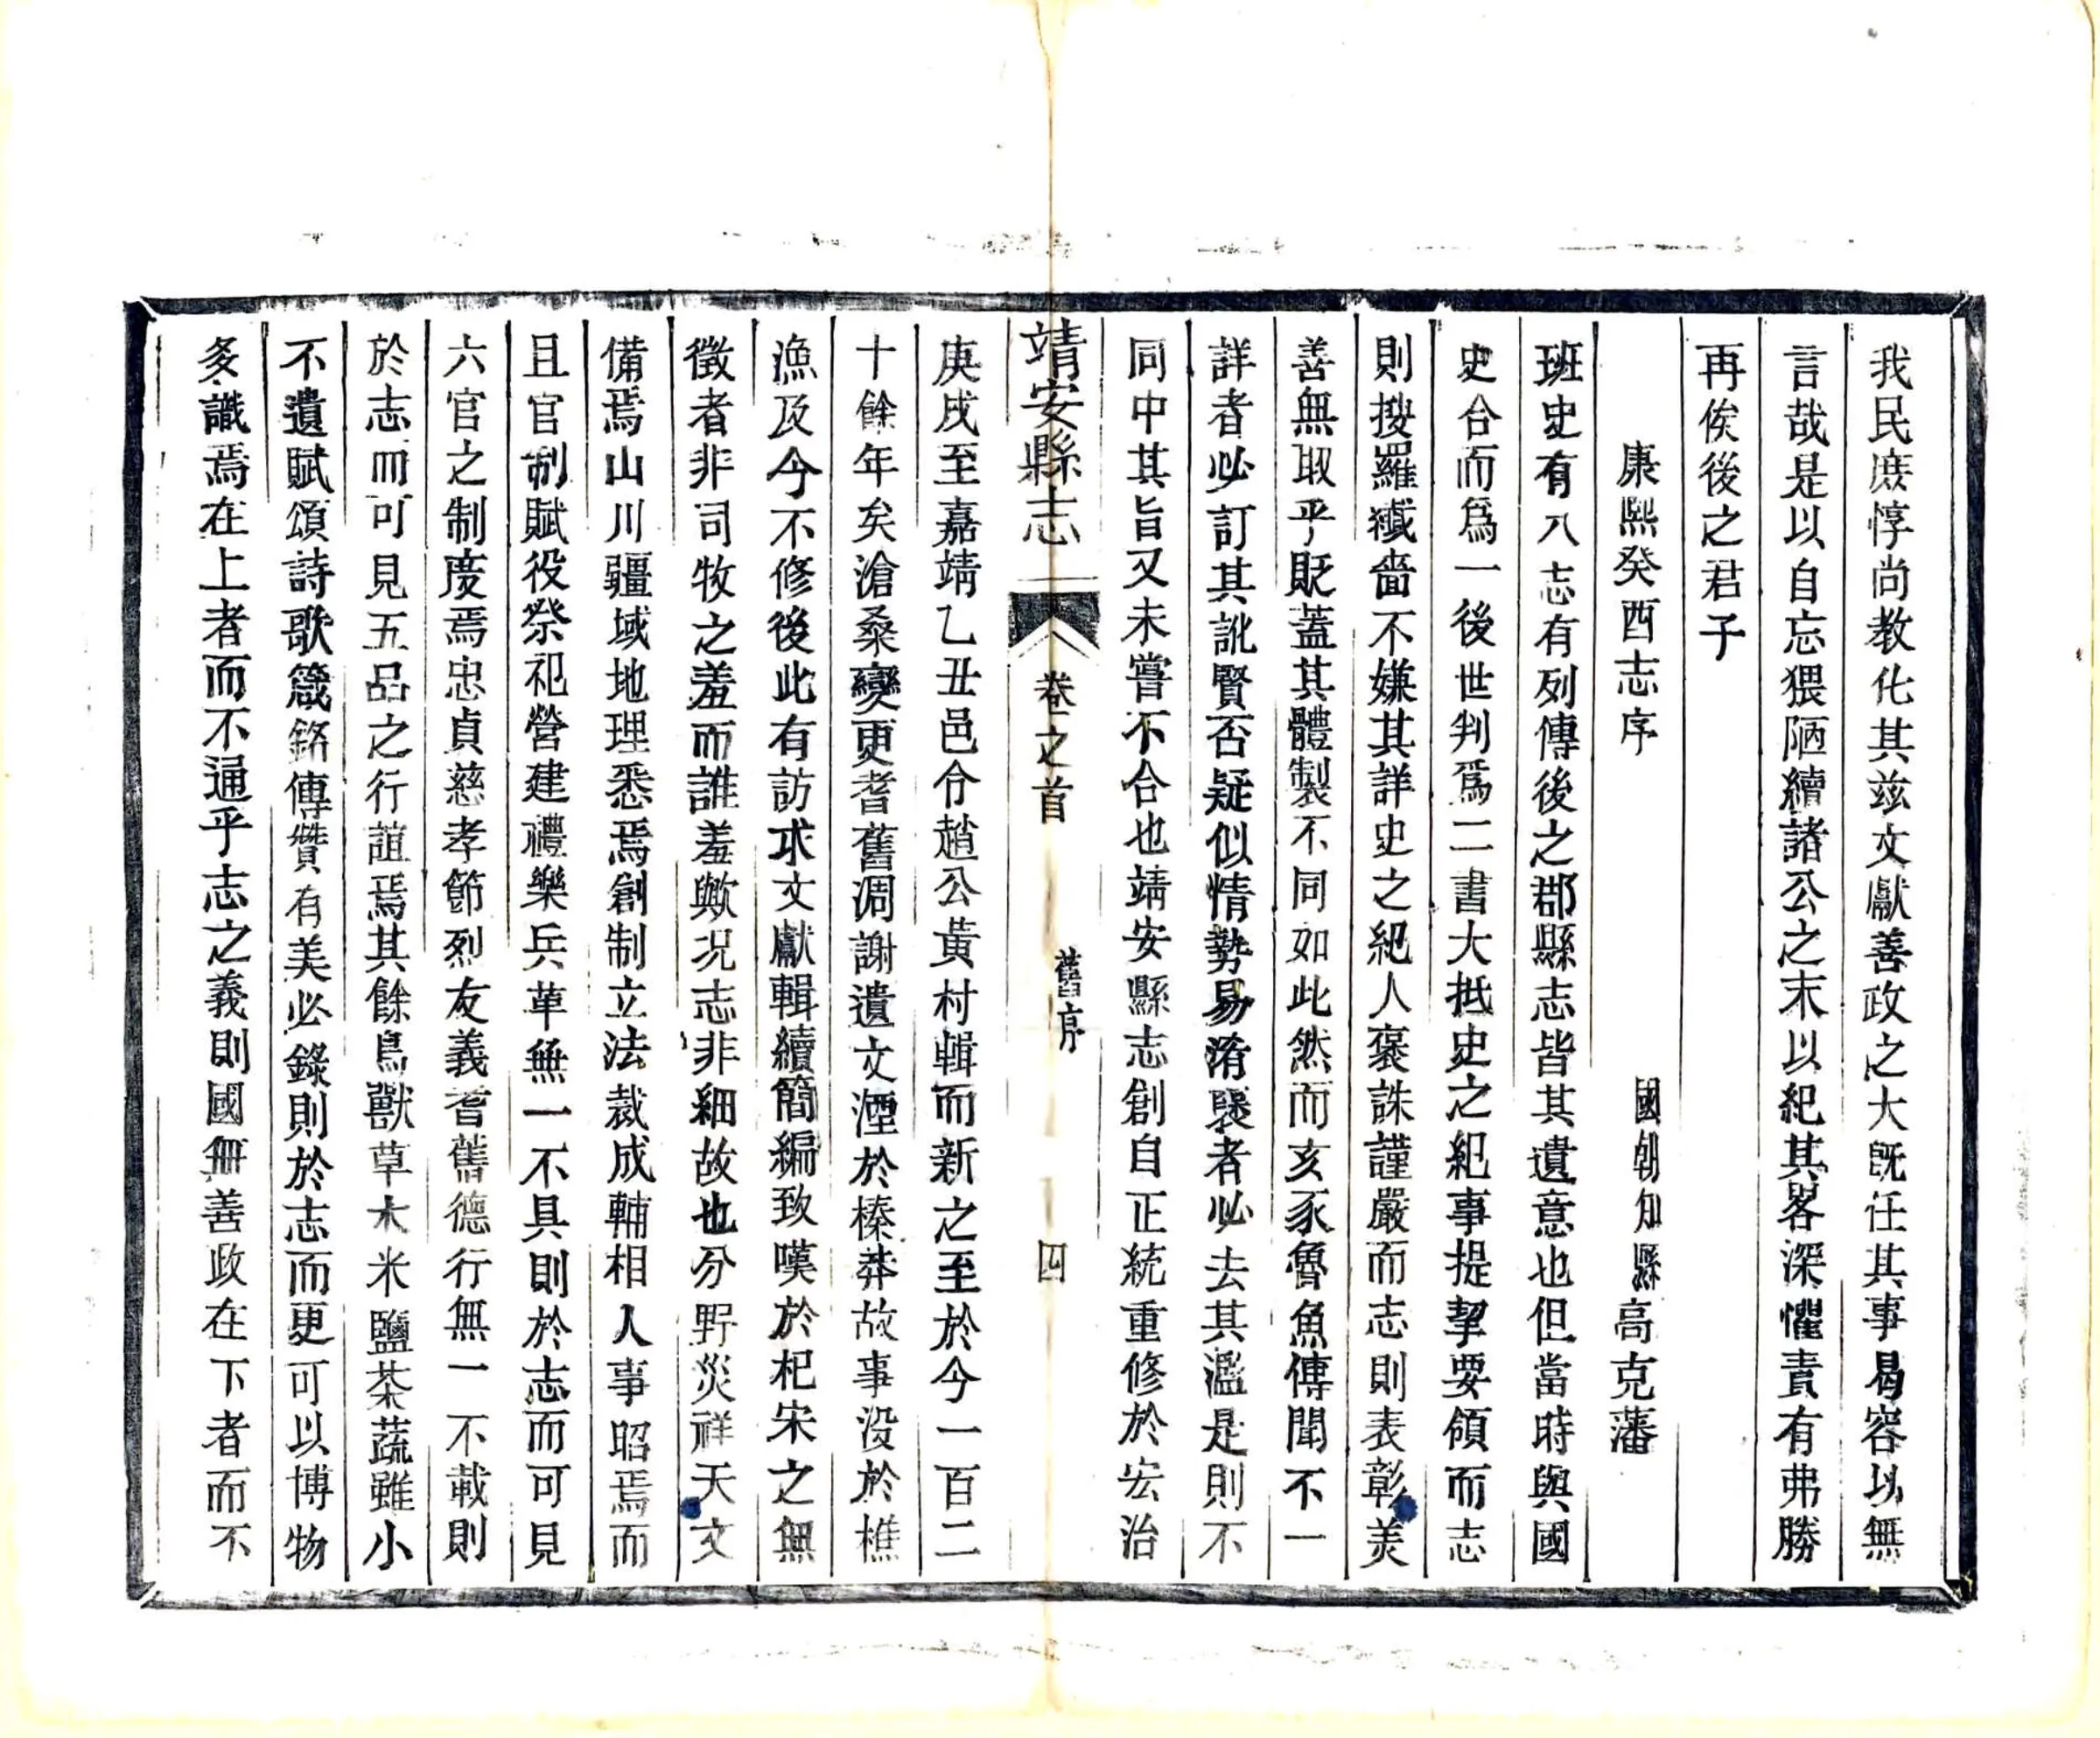 我民庶惇尚教化其茲文獻善政之大既任其事曷容以無
言哉是以自忘猥陋續諸公之末以紀其畧深懼責有弗勝
再俟後之君子
康熙癸酉志序
國朝知縣高克藩
班史有八志有列傳後之郡縣志皆其遺意也但當時與國
史合而爲一後世判爲二書大抵史之紀事提挈要領而志
則搜羅殲嗇不嫌其詳史之紀人褒誅謹嚴而志則表彰美
善無取乎貶蓋其體製不同如此然而亥豕魯魚傳聞不一
詳者必訂其訛賢否疑似情勢易淆褻者必去其濫是則不
同中其旨又未嘗不合也靖安縣志創自正統重修於宏治
靖安縣志
卷之首
舊序
四
庚戌至嘉靖乙丑邑令趙公黃村輯而新之至於今一百二
十餘年矣滄桑變更耆舊凋謝遺文湮於榛莽故事没於樵
漁及今不修後此有訪求文獻輯續簡編致嘆於杞宋之無
徵者非司牧之羞而誰羞歟況志非細故也分野災祥天文
備焉山川疆域地理悉焉創制立法裁成輔相人事昭焉而
且官制賦役祭祀營建禮樂兵革無一不具則於志而可見
六官之制度焉忠貞慈孝節烈友義耆舊德行無一不載則
於志而可見五品之行誼焉其餘鳥獸草木米鹽茶蔬雖小
不遺賦頌詩歌箴銘傳贊有美必錄則於志而更可以博物
多識焉在上者而不通乎志之義則國無善政在下者而不